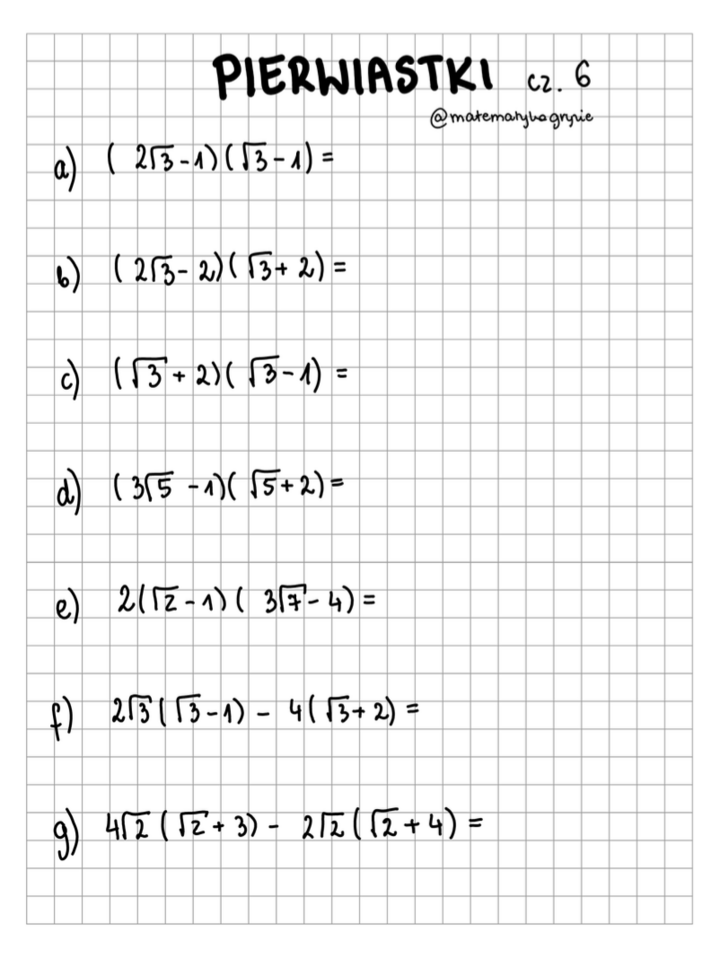 PIERWIASTKI cz. 6
@matematykagryzie
a) (2√3-1)(√3-1)=
b) (2√3-2)(√3+2)=
c) (√3+2)(√3-1)=
d) (3√5-1)(√5+2)=
e) 2(√2-1)(3√7-4)=
f) 2√3(√3-1)-4(√3+2)=
g) 4√2(√2+3)-2√2(√2+4)=